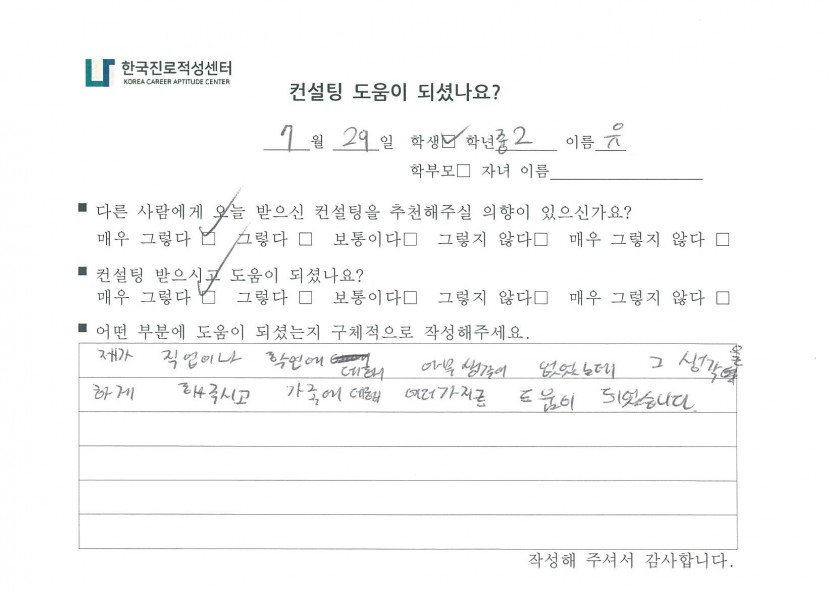 한국진로적성센터
KOREA CAREER APTITUDE CENTER
컨설팅 도움이 되셨나요?
7월 29일 학생☑ 학년 중2 이름 유
학부모□ 자녀 이름
■ 다른 사람에게 오늘 받으신 컨설팅을 추천해주실 의향이 있으신가요?
매우 그렇다 ☑ 그렇다 □ 보통이다□ 그렇지 않다□ 매우 그렇지 않다 □
■ 컨설팅 받으시고 도움이 되셨나요?
매우 그렇다 ☑ 그렇다 □ 보통이다□ 그렇지 않다□ 매우 그렇지 않다 □
■ 어떤 부분에 도움이 되셨는지 구체적으로 작성해주세요.
제가 직업이나 학업에 데해 아무 생각이 없었는데 그 생각을
하게 해주시고 가족에 데해 여러가지로 도움이 되었습니다.
작성해 주셔서 감사합니다.